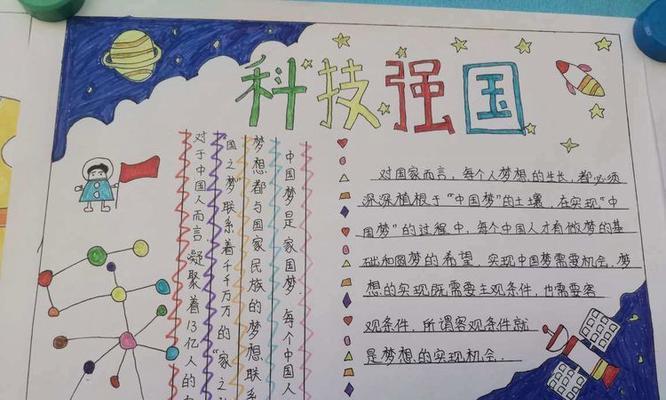 科技强国
中国梦是家国梦 每个中国人
梦想都与国家民族的梦想联系
"国之梦"联系着千千万万的"家之
对于中国人而言 凝聚着13亿人的
对国家而言，每个人梦想的生长，都必须
深深植根于"中国梦"的土壤，在实现"中
国梦"的过程中，每个中国人才有做梦的基
础和圆梦的希望，实现中国梦需要机会，梦
想的实现既需要主观条件，也需要客
观条件，所谓客观条件就
是梦想的实现机会.